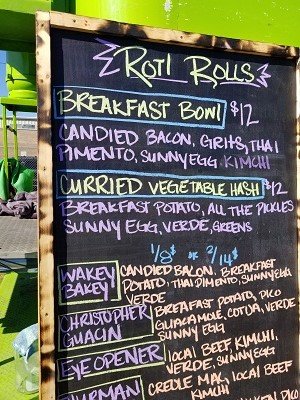 ROTI ROLLS
BREAKFAST BOWL $12
CANDIED BACON, GRITS, THAI
PIMENTO, SUNNY EGG KIMCHI
CURRIED VEGETABLE HASH $12
BREAKFAST POTATO, ALL THE PICKLES
SUNNY EGG, VERDE, GREENS
1/8$ or 2/14$
WAKEY BAKEY
CANDIED BACON, BREAKFAST
POTATO, THAI PIMENTO, SUNNY EGG
VERDE
CHRISTOPHER GUACIN
BREAFAST POTATO, PICO
GUACAMOLE, COTIJA, VERDE
SUNNY EGG
EYE OPENER
LOCAL BEEF KIMCHI,
VERDE, SUNNY EGG
CREOLE MAC, LOCAL BEEF
KIMCHI